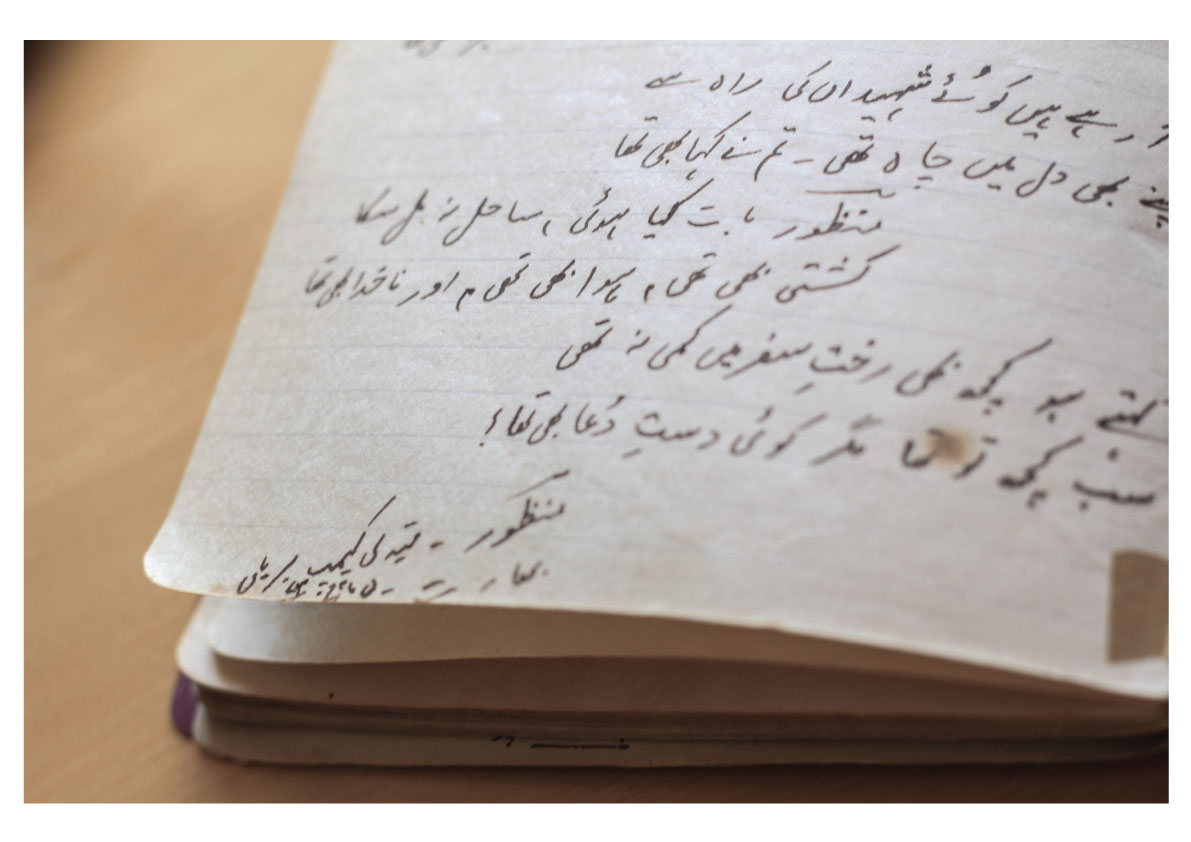 رہے ہیں کوئے شہیداں کی راہ سے
بھی دل میں چاہ تھی - تم نے کہا بھی تھا
منظور بات کیا ہوئی، ساحل نہ مل سکا
کشتی بھی تھی، ہوا بھی تھی، اور ناخدا بھی تھا
کہتے ہو کچھ بھی رختِ سفر میں کمی نہ تھی
سب کچھ تو تھا مگر کوئی دستِ دُعا بھی تھا؟
منظور - قیدی کیمپ بریلی
بھارت -